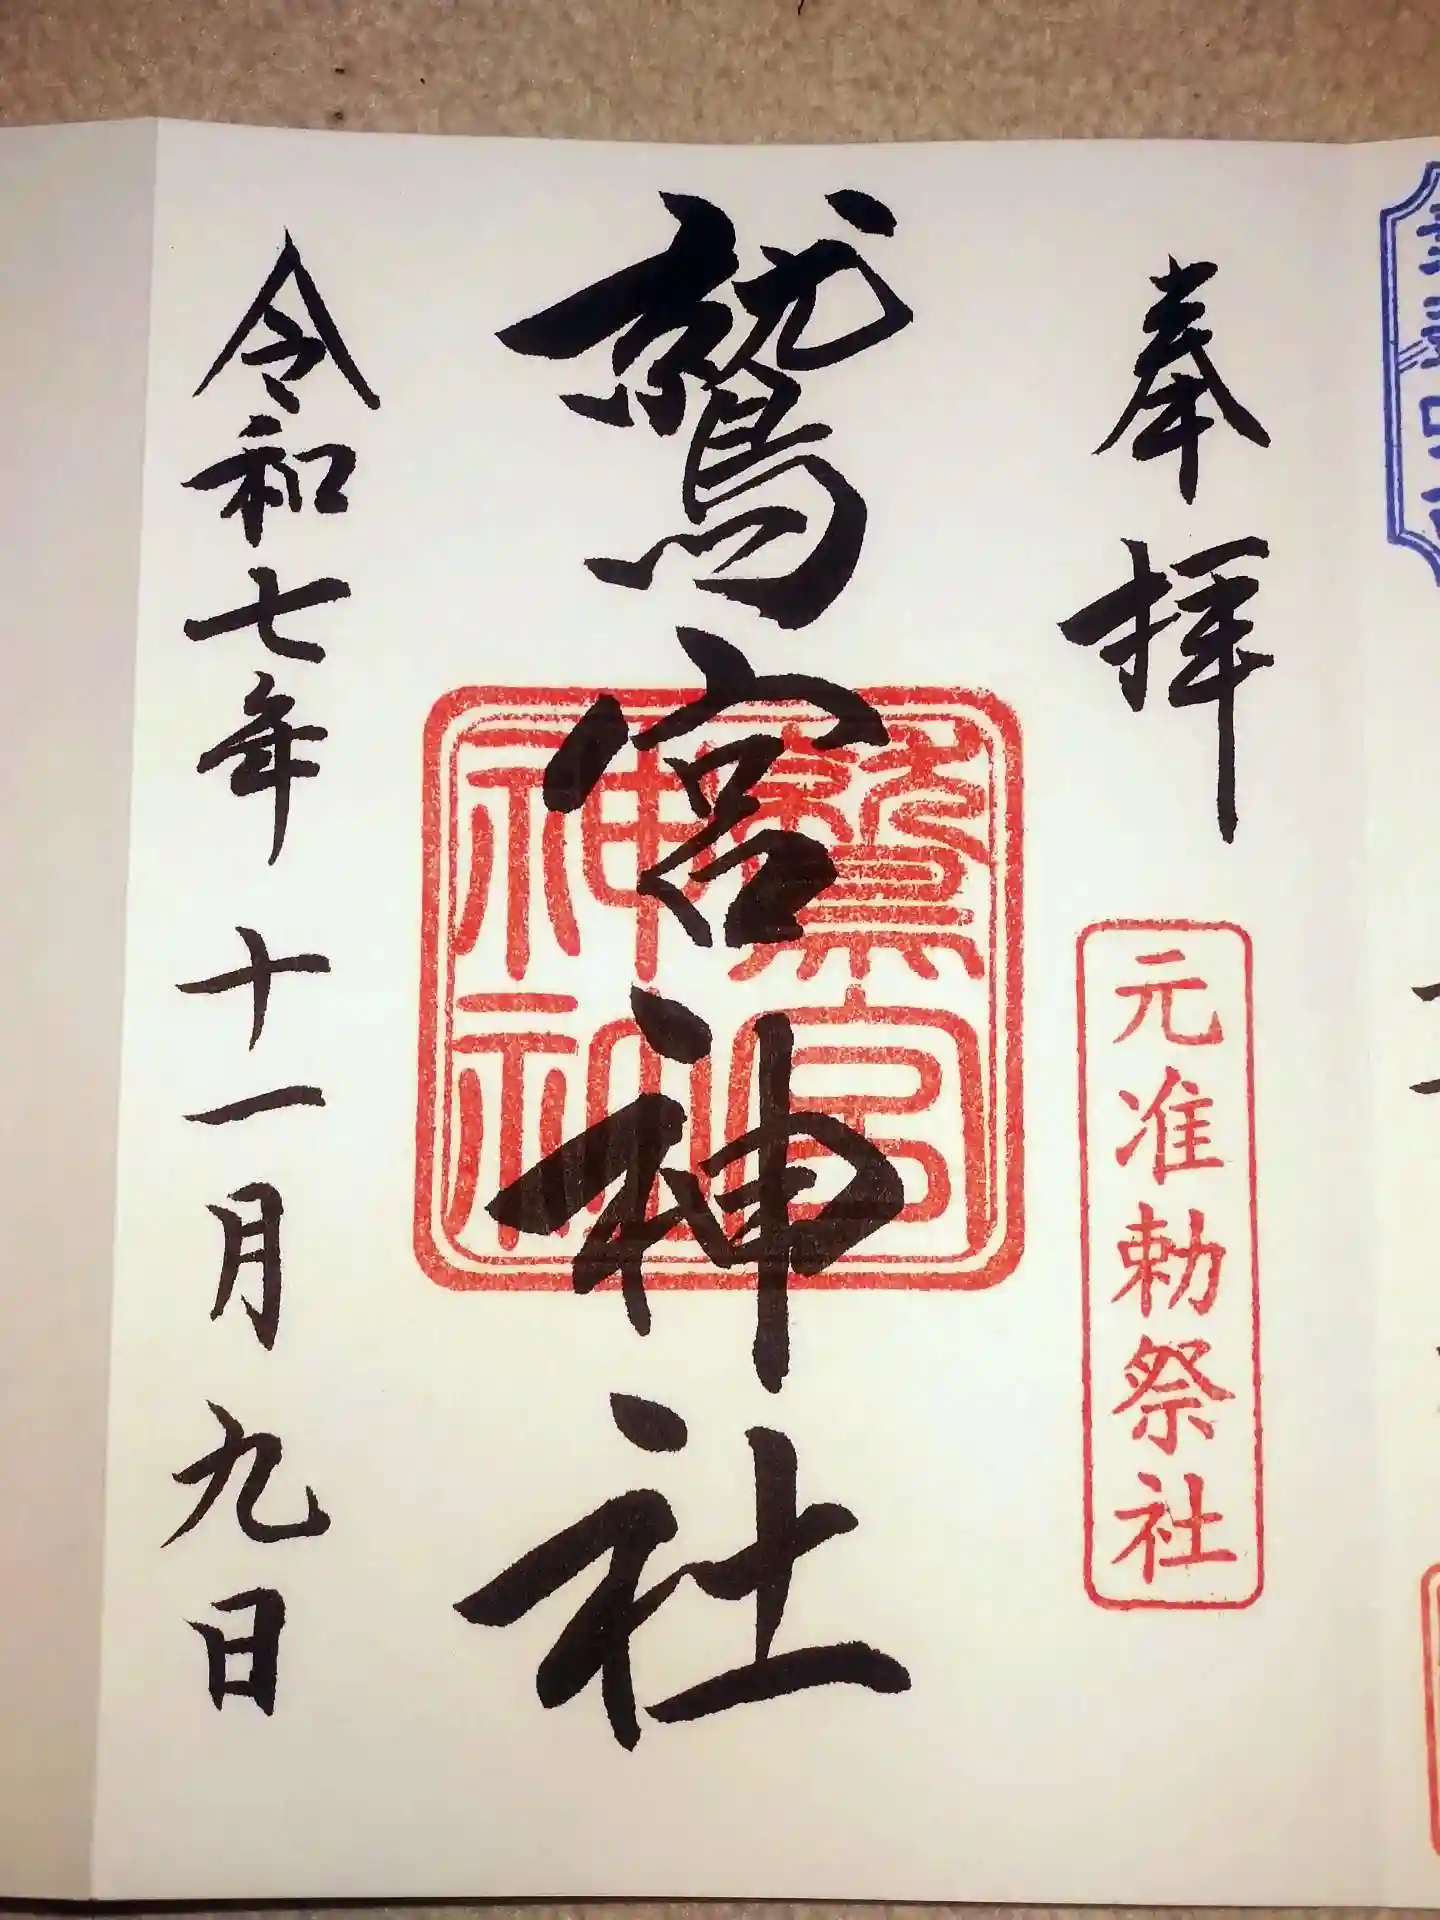 奉拝
元准勅祭社
鷲宮神社
鷲宮
神社
令和七年十一月九日